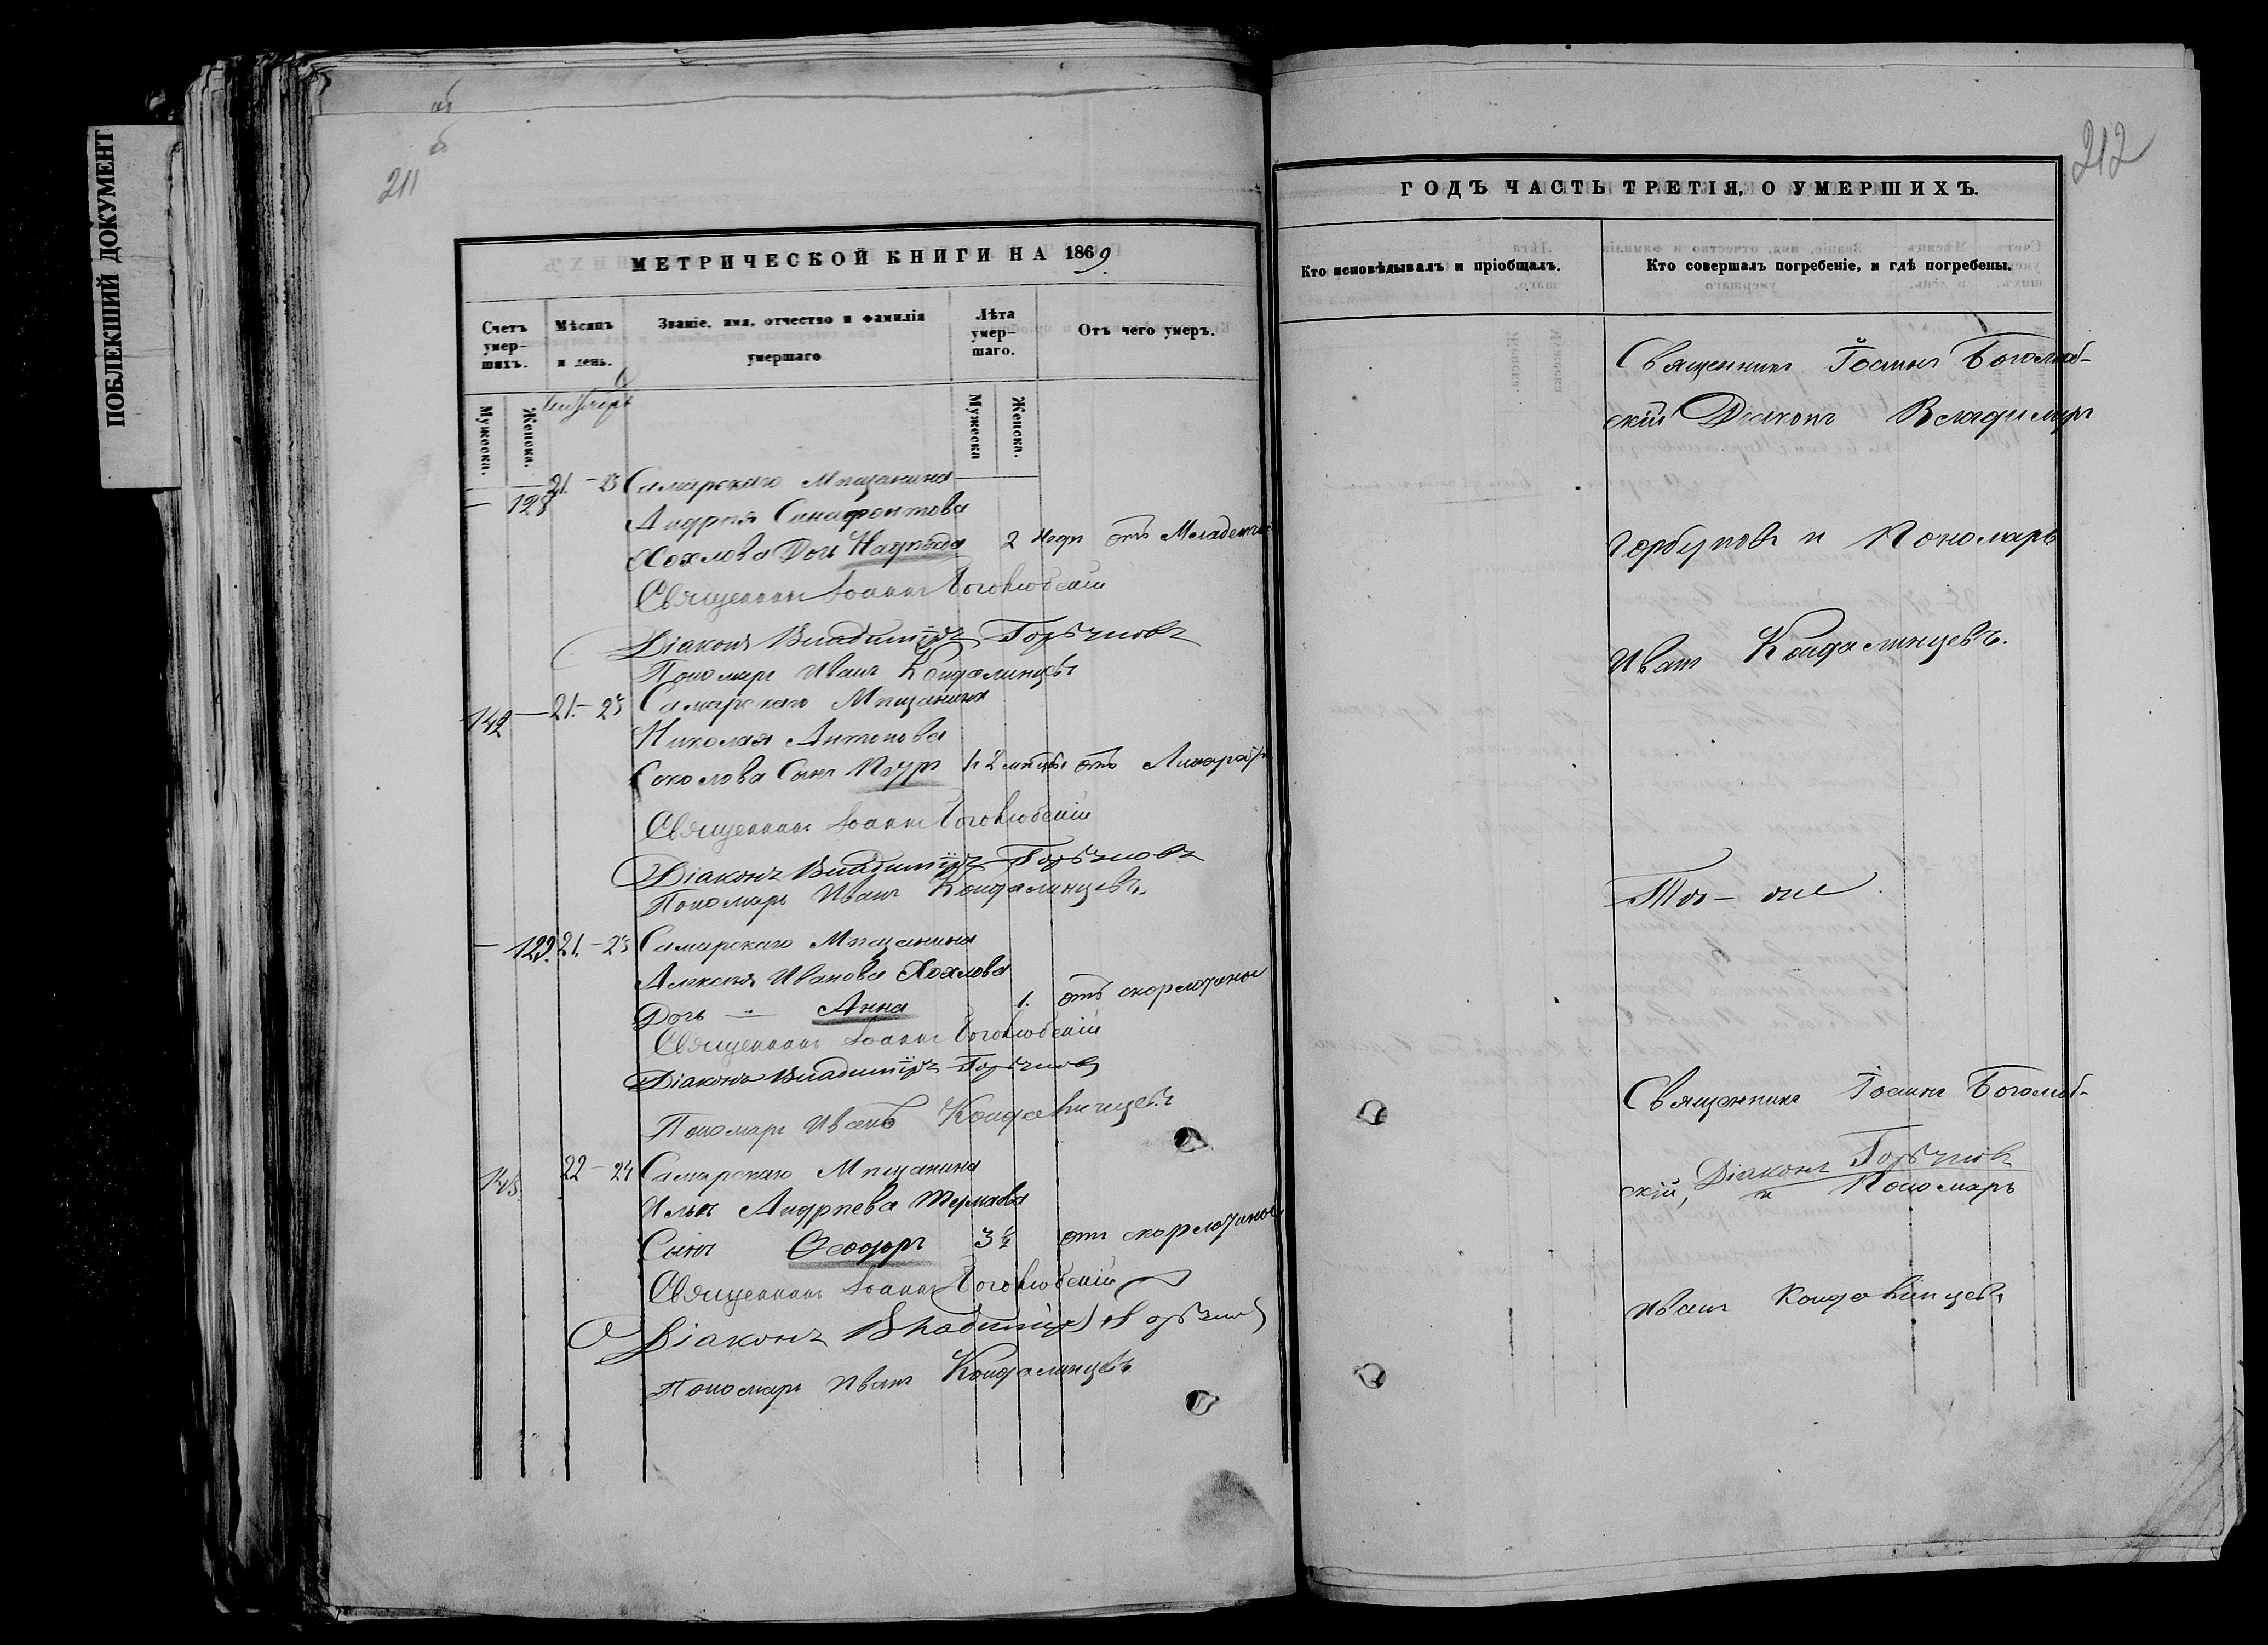 ПОБЛЕКШИЙ ДОКУМЕНТ
211
МЕТРИЧЕСКОЙ КНИГИ НА 1869
Счетъ умер-шихъ.
Мѣсяцъ и день.
Званіе, имя, отчество и фамилія умершаго
Лѣта умер-шаго.
Отъ чего умеръ.
Мужеска.
Женска.
Мужеска
Женска.
— 128 21. – 23 Самарскаго Мѣщанина
Андрея
Хохлова Дочь 2 нед. отъ Младенч.
Священникъ Іоаннъ Боголюбскій
Діаконъ Владиміръ Горбуновъ
Пономарь Иванъ Кондалинцевъ
142 — 21. – 23 Самарскаго Мѣщанина
Николая Антонова
Соколова Сынъ Петръ отъ
Священникъ Іоаннъ Боголюбскій
Діаконъ Владиміръ Горбуновъ
Пономарь Иванъ Кондалинцевъ.
— 129. 21. – 23 Самарскаго Мѣщанина
Алексѣя Иванова Хохлова
Дочь — Анна 1. отъ скарлатины
Священникъ Іоаннъ Боголюбскій
Діаконъ Владиміръ Горбуновъ
Пономарь Иванъ Кондалинцевъ
143. 22 – 24 Самарскаго Мѣщанина
Ильи Андреева
Сынъ Ѳеодоръ 3½ отъ скарлатины
Священникъ Іоаннъ Боголюбскій
Діаконъ Владиміръ Горбуновъ
Пономарь Иванъ Кондалинцевъ
212
ГОДЪ ЧАСТЬ ТРЕТІЯ, О УМЕРШИХЪ.
Кто исповѣдывалъ и пріобщалъ.
Кто совершалъ погребеніе, и гдѣ погребены.
Священникъ Іоаннъ Боголюб-
скій Діаконъ Владимиръ
Горбуновъ и Пономарь
Иванъ Кондалинцевъ.
Тѣ – же
Священникъ Іоаннъ Боголюб-
скій, Діаконъ Горбуновъ
и Пономарь
Иванъ Кондалинцевъ